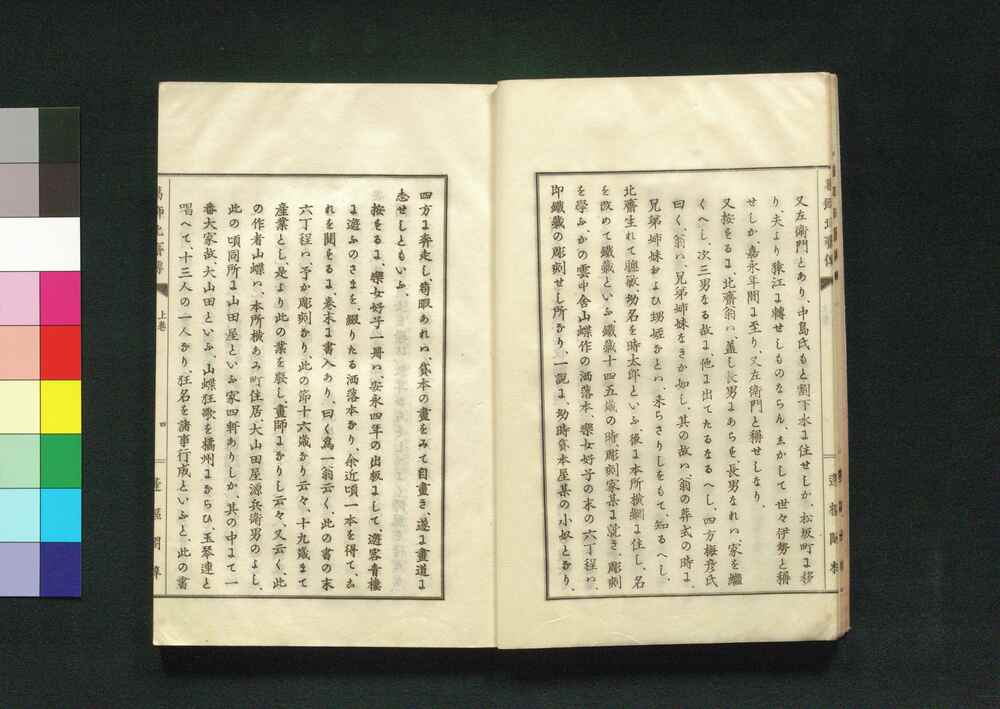 又左衛門とあり、中島氏もと割下水に住せしか、松坂町に移
り夫より猿江に轉せしものならん、主かして世々伊勢と稱
せしか、嘉永年間に至り、又左衛門と稱せしなり、
又按をるに、北齋翁ハ、蓋し長男にあらを、長男なれハ、家を繼
くへし、次三男なる故に、他に出てたるなるへし、四方梅彦氏
曰く、翁ハ、兄弟姉妹なきか如し、其の故ハ、翁の葬式の時に、
兄弟姉妹および甥姪などハ、来らさりしをもて、知るへし、
北齋生れて聰敏、幼名を時太郎といふ、後に本所横網に住し、名
を改めて鐵藏といふ、鐵藏十四五歳の時、彫刻家某に就き、彫刻
を學ふ、かの雲中舎山蝶作の洒落本、樂女好子の末の六丁程ハ、
即鐵藏の彫刻せし所なり、一説に、幼時貸本屋某の小奴となり、
四方に奔走し、苟暇あれハ、貸本の畫をみて自畫き、遂に畫道に
志せしともいふ、
按をるに、樂女好子一冊ハ、安永四年の出版にして、遊客青樓
に遊ふのさまを、綴りたる洒落本なり、余近頃一本を得て、ふ
れを閲をるに、巻末に書入あり、曰く爲一翁云く、此の書の末
六丁程ハ、予か彫刻なり、此の節十六歳なり云々、十九歳まて
産業とし、是より此の業を廢し、畫師になりし云々、又云く、此
の作者山蝶ハ、本所横あみ町住居、大山田屋源兵衛男のよし、
此の頃同所に山田屋といふ家四軒ありしか、其の中にて一
番大家故、大山田といふ、山蝶狂歌を橘州にならひ、玉琴連と
唱へて、十三人の一人なり、狂名を諸事行成といふと、此の書
葛飾北齋傳
上巻
四